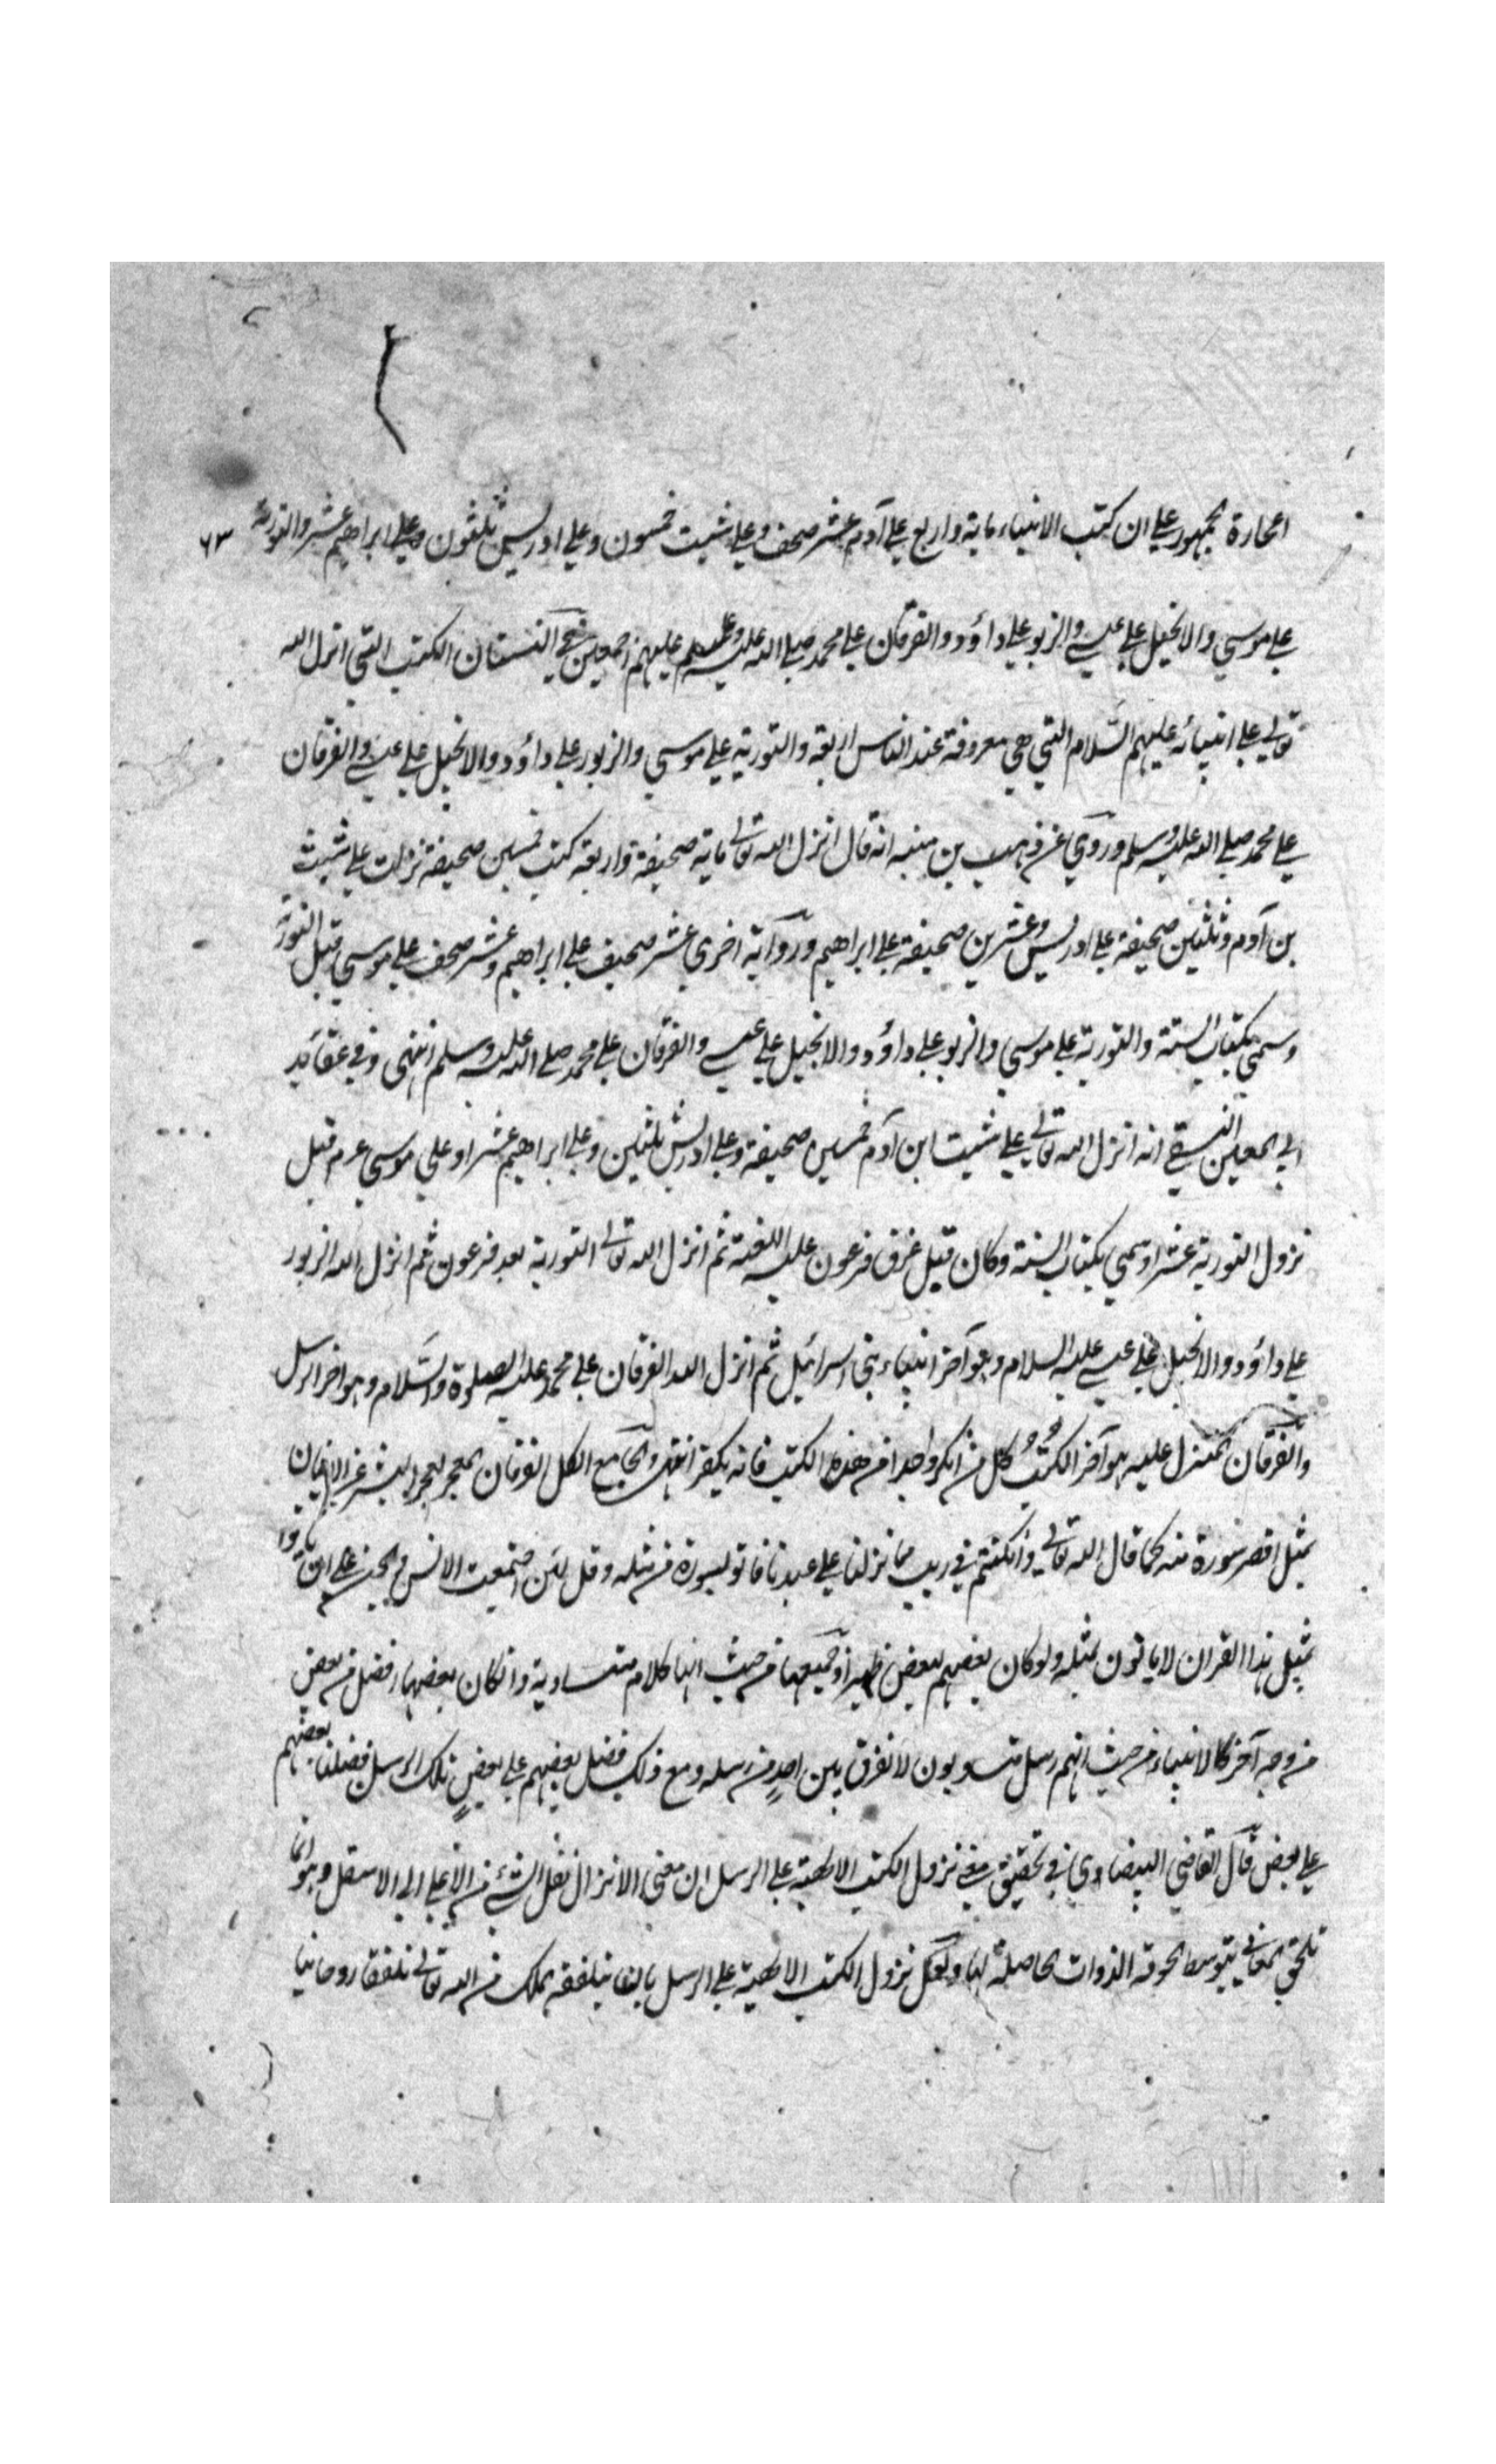 الجمهور علي ان كتب الانبياء ماية واربع علي آدم عشر صحف وعلي شيث خمسون وعلي ادريس ثلثون وعلي ابراهيم عشر والتورية ٦٣
علي موسي والانجيل علي عيسي والزبور علي داؤد والفرقان علي محمد صلي الله عليه وعليهم اجمعين الكتب التي انزل الله
تعالي علي انبيائه عليهم السلام التي هي معروفة عند الناس اربعة والتورية علي موسي والزبور علي داؤد والانجيل علي عيسي والفرقان
علي محمد صلي الله عليه وسلم وروي عن وهب بن منبه انه قال انزل الله تعالي ماية صحيفة واربعة كتب خمسين صحيفة نزلت علي شيث
بن آدم وثلثين صحيفة علي ادريس وعشرين صحيفة علي ابراهيم ورواية اخري عشر صحيف علي ابراهيم وعشر صحف علي موسي قبل التورية
وسمي بكتاب السنة والتورية علي موسي والزبور علي داؤد والانجيل علي عيسي والفرقان علي محمد صلي الله عليه وسلم انتهي وفي عقايد
ابي المعين النسفي انه انزل الله تعالي علي شيث ابن آدم خمسين صحيفة وعلي ادريس ثلثين وعلي ابراهيم عشرا وعلي موسي عم قبل
نزول التورية عشرا وسمي بكتاب السنة وكان قبل غرق فرعون عليه اللعنة ثم انزل الله تعالي التورية بعد فرعون ثم انزل الله الزبور
علي داؤد والانجيل علي عيسي عليه السلام وهو آخر انبياء بني اسرائيل ثم انزل الله الفرقان علي محمد عليه الصلوة والسلام وهو اخر الرسل
والفرقان المنزل عليه هو آخر الكتب كل من انكر واحدا من هذه الكتب فانه يكفر انتهي والجامع الكل الفرقان المعجز البشر عن الاتيان
بمثل اقصر سورة منه كما قال الله تعالي وان كنتم في ريب مما نزلنا علي عبدنا فاتو بسورة من مثله وقل لئن اجتمعت الانس والجن علي ان ياتوا
بمثل هذا القران لا ياتون بمثله ولو كان بعضهم لبعض ظهيرا وجميعها من حيث انها كلام متساوية وانكان بعضها افضل من بعض
من وجه آخر كالانبياء من حيث انهم رسل متساويون لا نفرق بين احد من رسله ومع ذلك فضل بعضهم علي بعض تلك الرسل فضلنا بعضهم
علي بعض قال القاضي البيضاوي في تحقيق معني نزول الكتب الالهية علي الرسل ان معني الانزال نقل الشئ من الاعلي الي الاسفل وهو انما
تلحق المعاني بتوسط لحوقه الذوات الحاصلة لها ولعل نزول الكتب الالهية علي الرسل بان يتلقفه الملك من الله تعالي تلقفا روحانيا